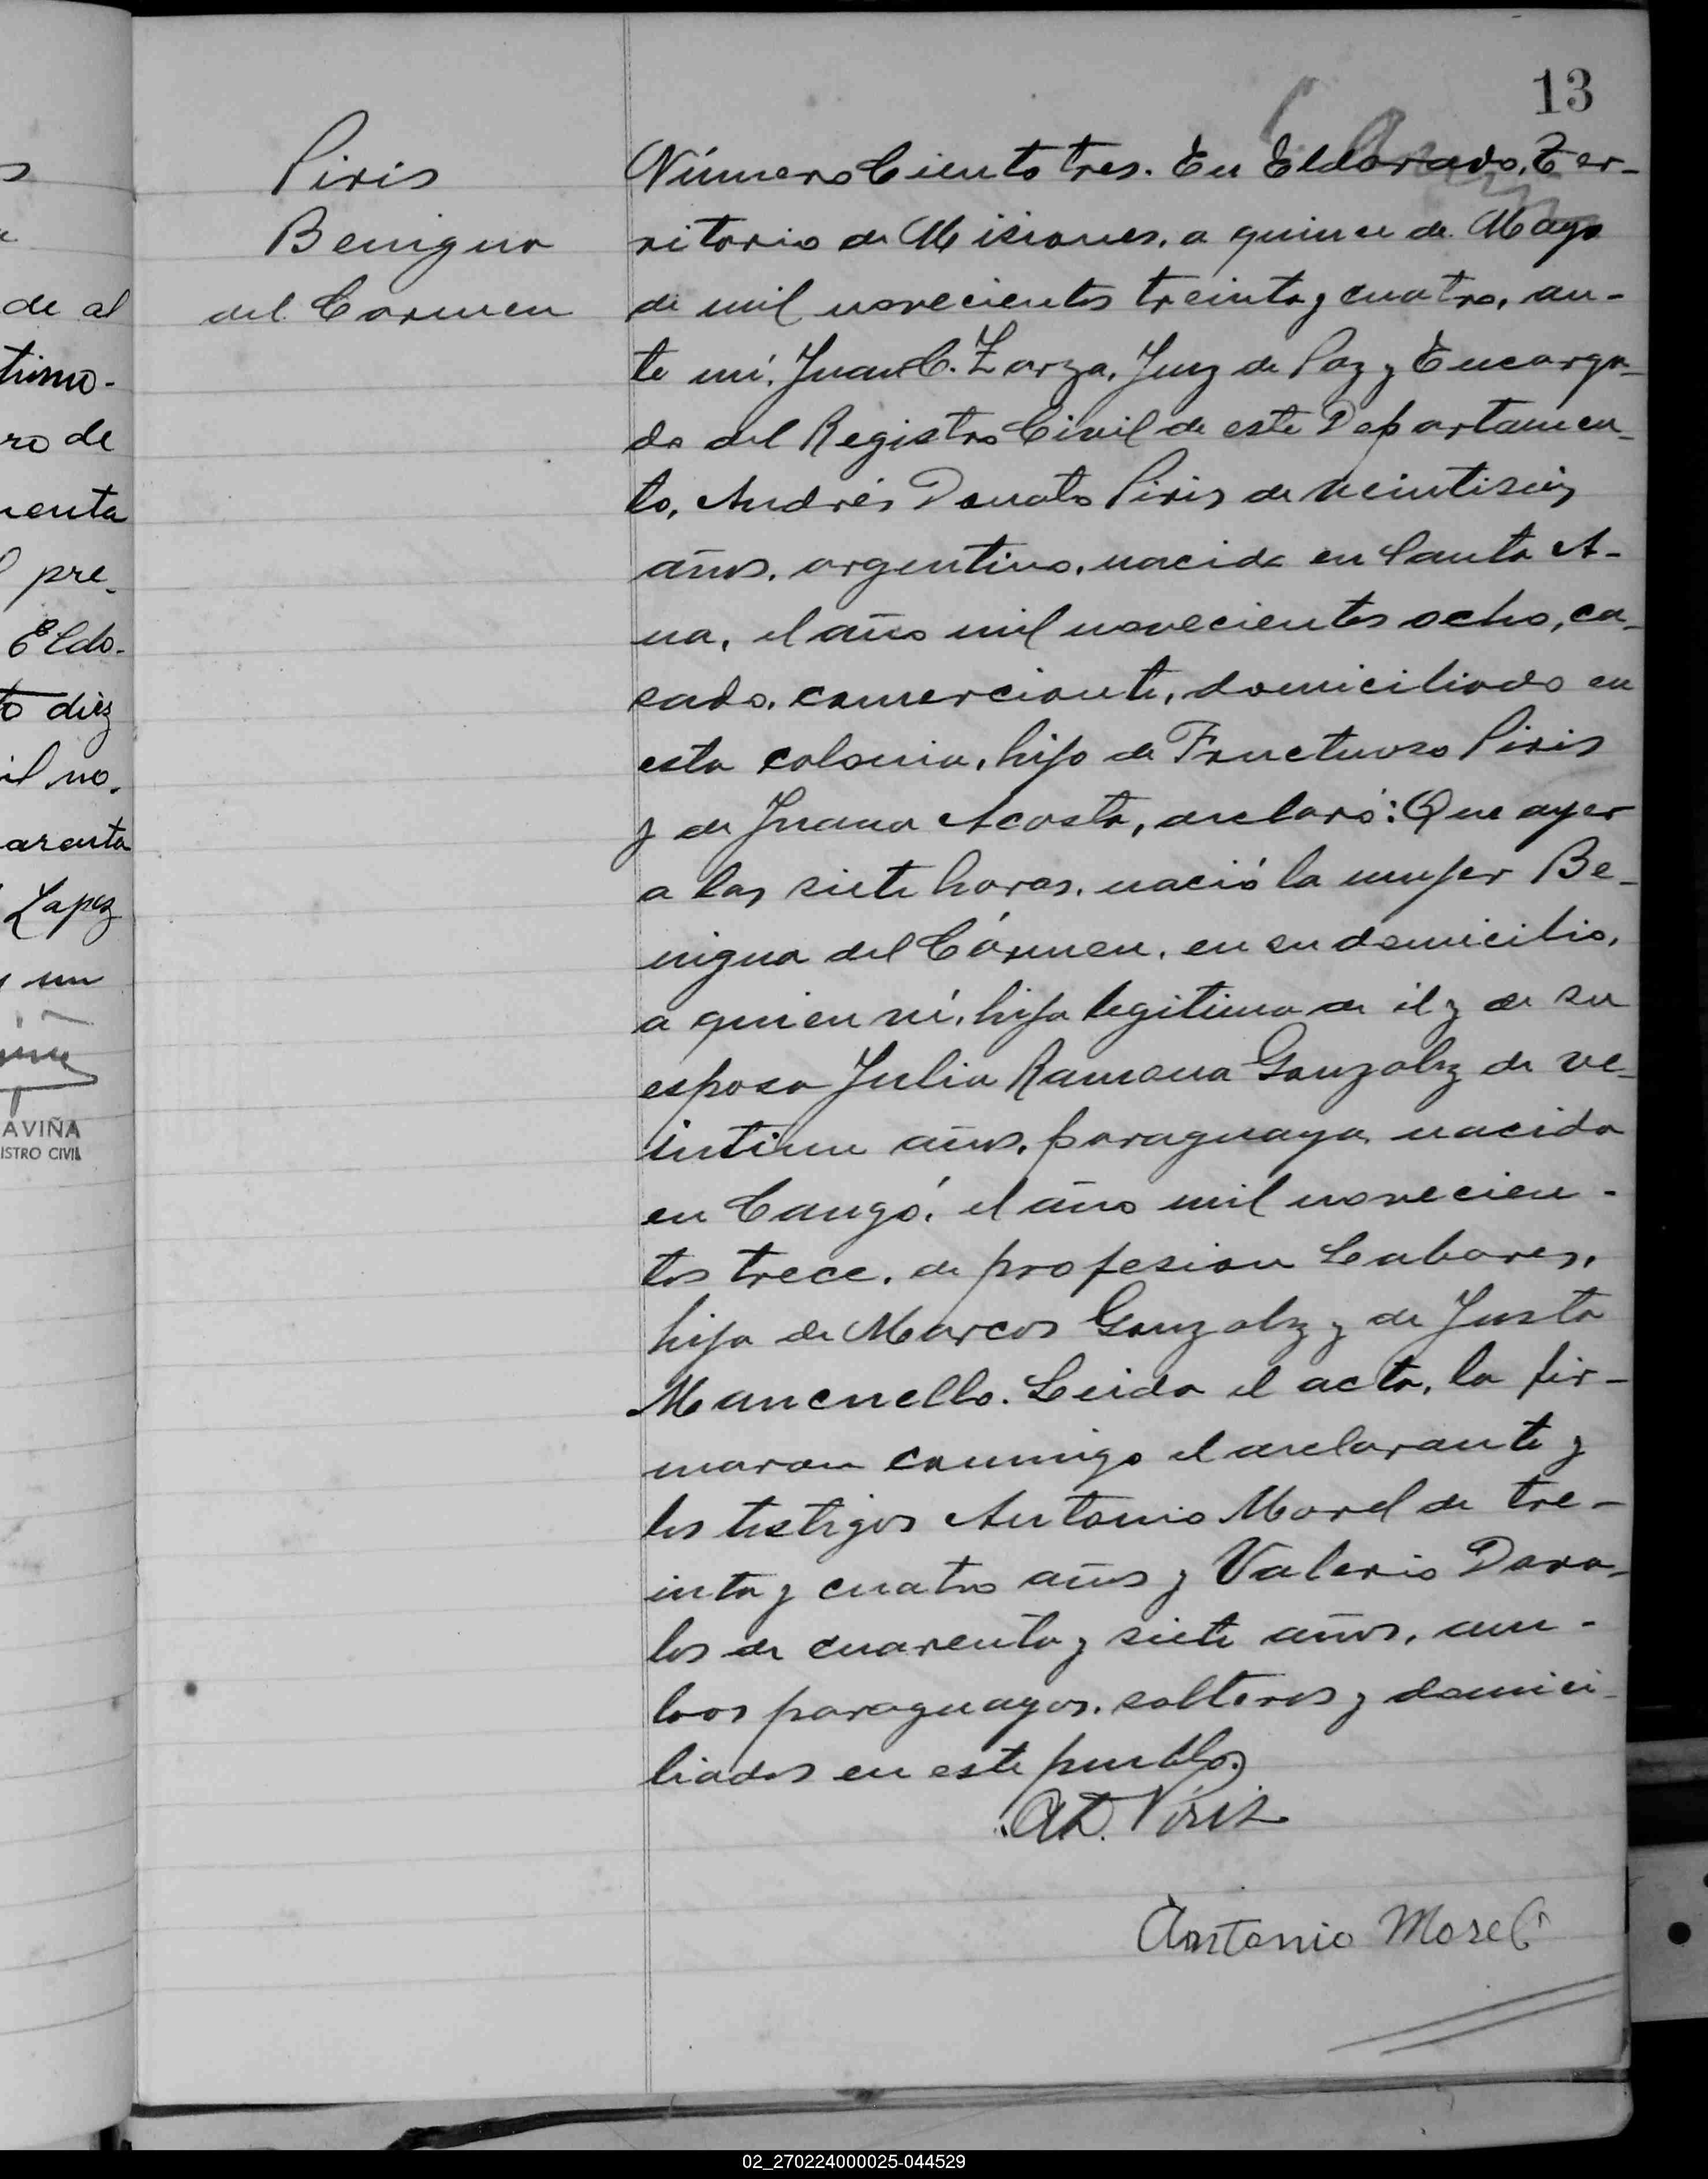 13
Piris
Benigna
del Carmen
Número Ciento tres. En Eldorado, Ter-
ritorio de Misiones, a quince de Mayo
de mil novecientos treinta y cuatro, an-
te mí, Juan C. Zarza, Juez de Paz y Encarga-
do del Registro Civil de este Departamen-
to, Andrés Donato Piris de veintiseis
años, argentino, nacido en Santa A-
na, el año mil novecientos ocho, ca-
sado, comerciante, domiciliado en
esta colonia, hijo de Fructuoso Piris
y de Juana Acosta, declaró: Que ayer
a las siete horas, nació la mujer Be-
nigna del Cármen, en su domicilio,
a quien ví, hija legitima de él y de su
esposa Julia Ramona Gonzalez de ve-
intiun años, paraguaya, nacida
en Cangó, el año mil novecien-
tos trece, de profesion Labores,
hija de Marcos Gonzalez y de Justa
Mancuello. Leida el acta, la fir-
maron conmigo el declarante y
los testigos Antonio Morel de tre-
inta y cuatro años y Valerio Dava-
los de cuarenta y siete años, am-
bos paraguayos, solteros y domici-
liados en este pueblo.
A.D. Piris
Antonio Morel
de al
timo-
ro de
pre-
Eldo-
to diez
il no-
arenta
Lapez
y un
AVIÑA
ISTRO CIVIL
02_270224000025-044529